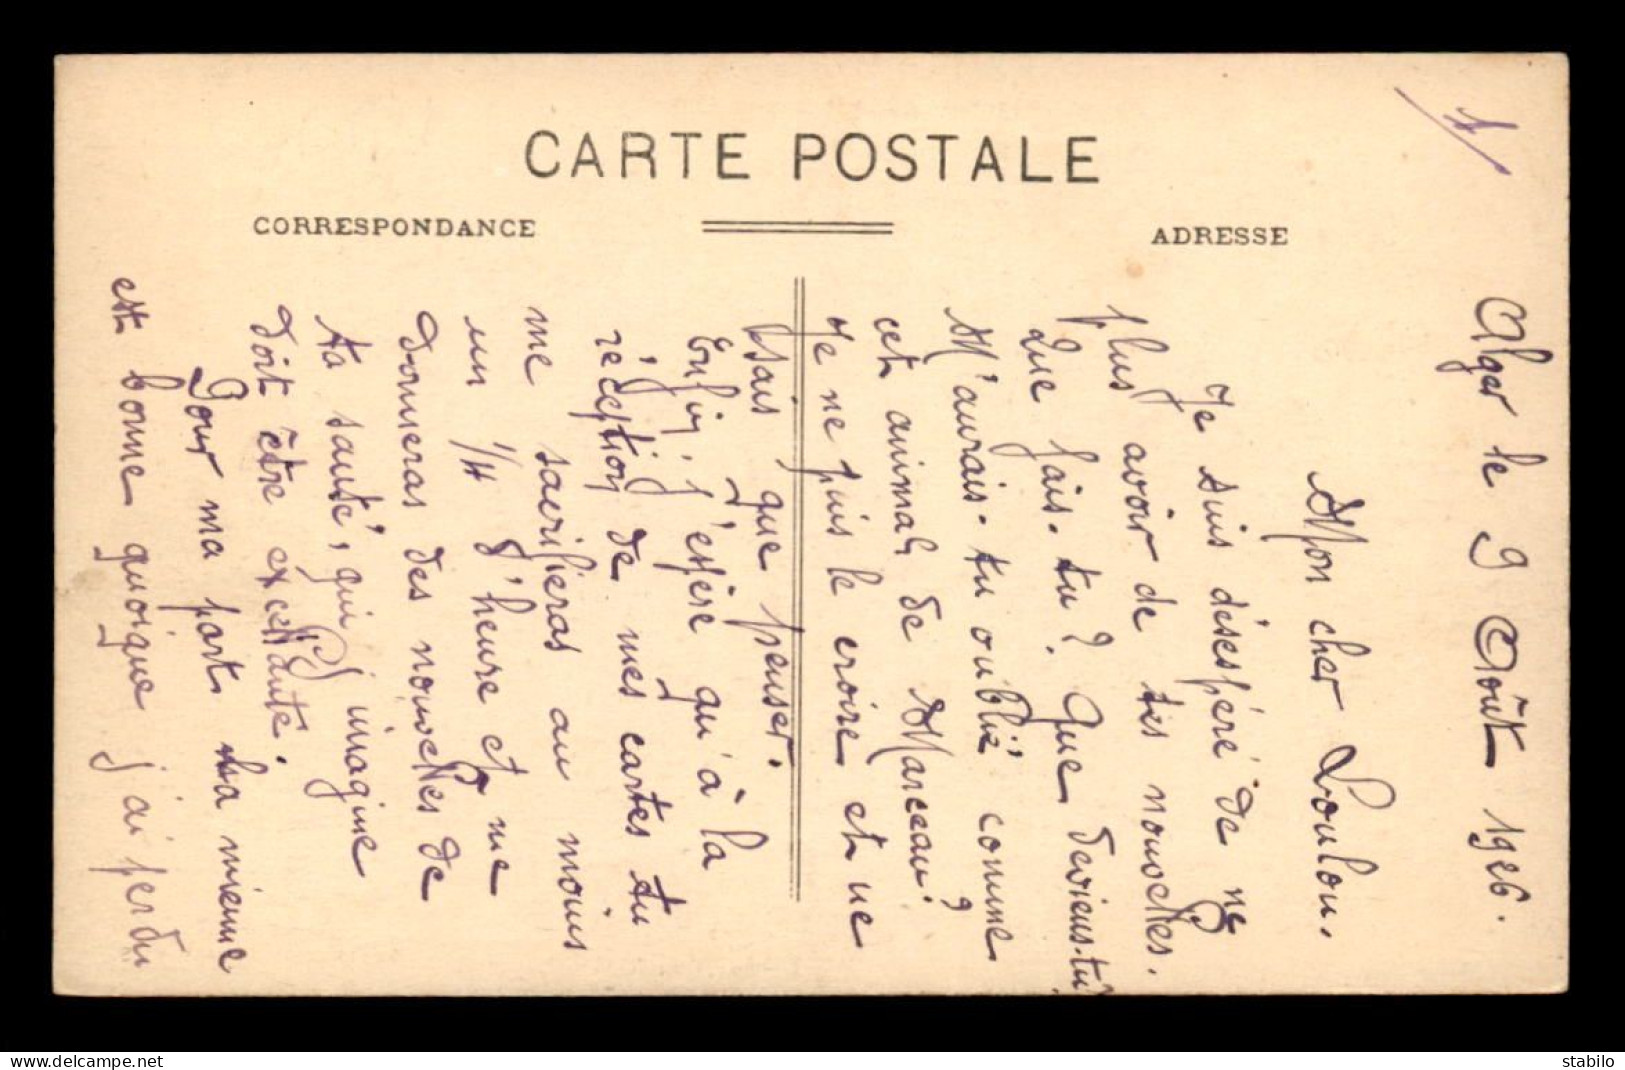 CARTE POSTALE
CORRESPONDANCE
ADRESSE
1/
Alger le 9 Août 1926.
Mon cher Loulou.
Je suis désespéré de ne
plus avoir de tes nouvelles.
Que fais-tu? Que deviens-tu?
M'aurais-tu oublié comme
cet animal de Marceau?
Je ne puis le croire et ne
sais que penser.
Enfin j'espère qu'à la
réception de mes cartes tu
me sacrifieras au moins
un 1/4 d'heure et me
donneras des nouvelles de
ta santé, qui j'imagine
doit être excellante.
Pour ma part la mienne
est bonne quoique j'ai perdu
www.delcampe.net
stabilo